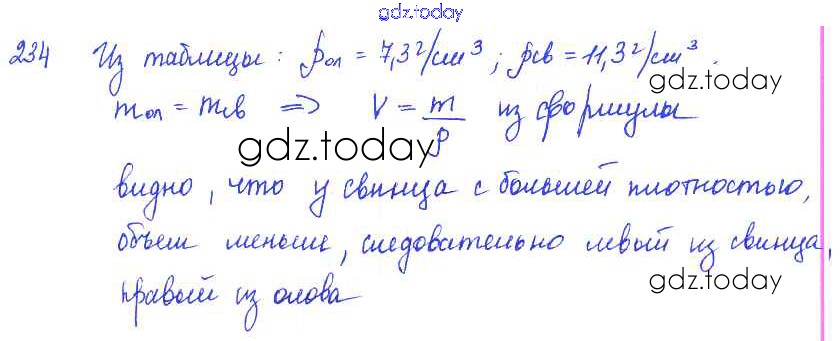 gdz.today
234 Из таблицы: ρол = 7,3 г/см³; ρсв = 11,3 г/см³.
gdz.today
mол = mсв => V = m/ρ из формулы
gdz.today
видно, что у свинца с большей плотностью,
объем меньше, следовательно левый из свинца,
правый из олова
gdz.today